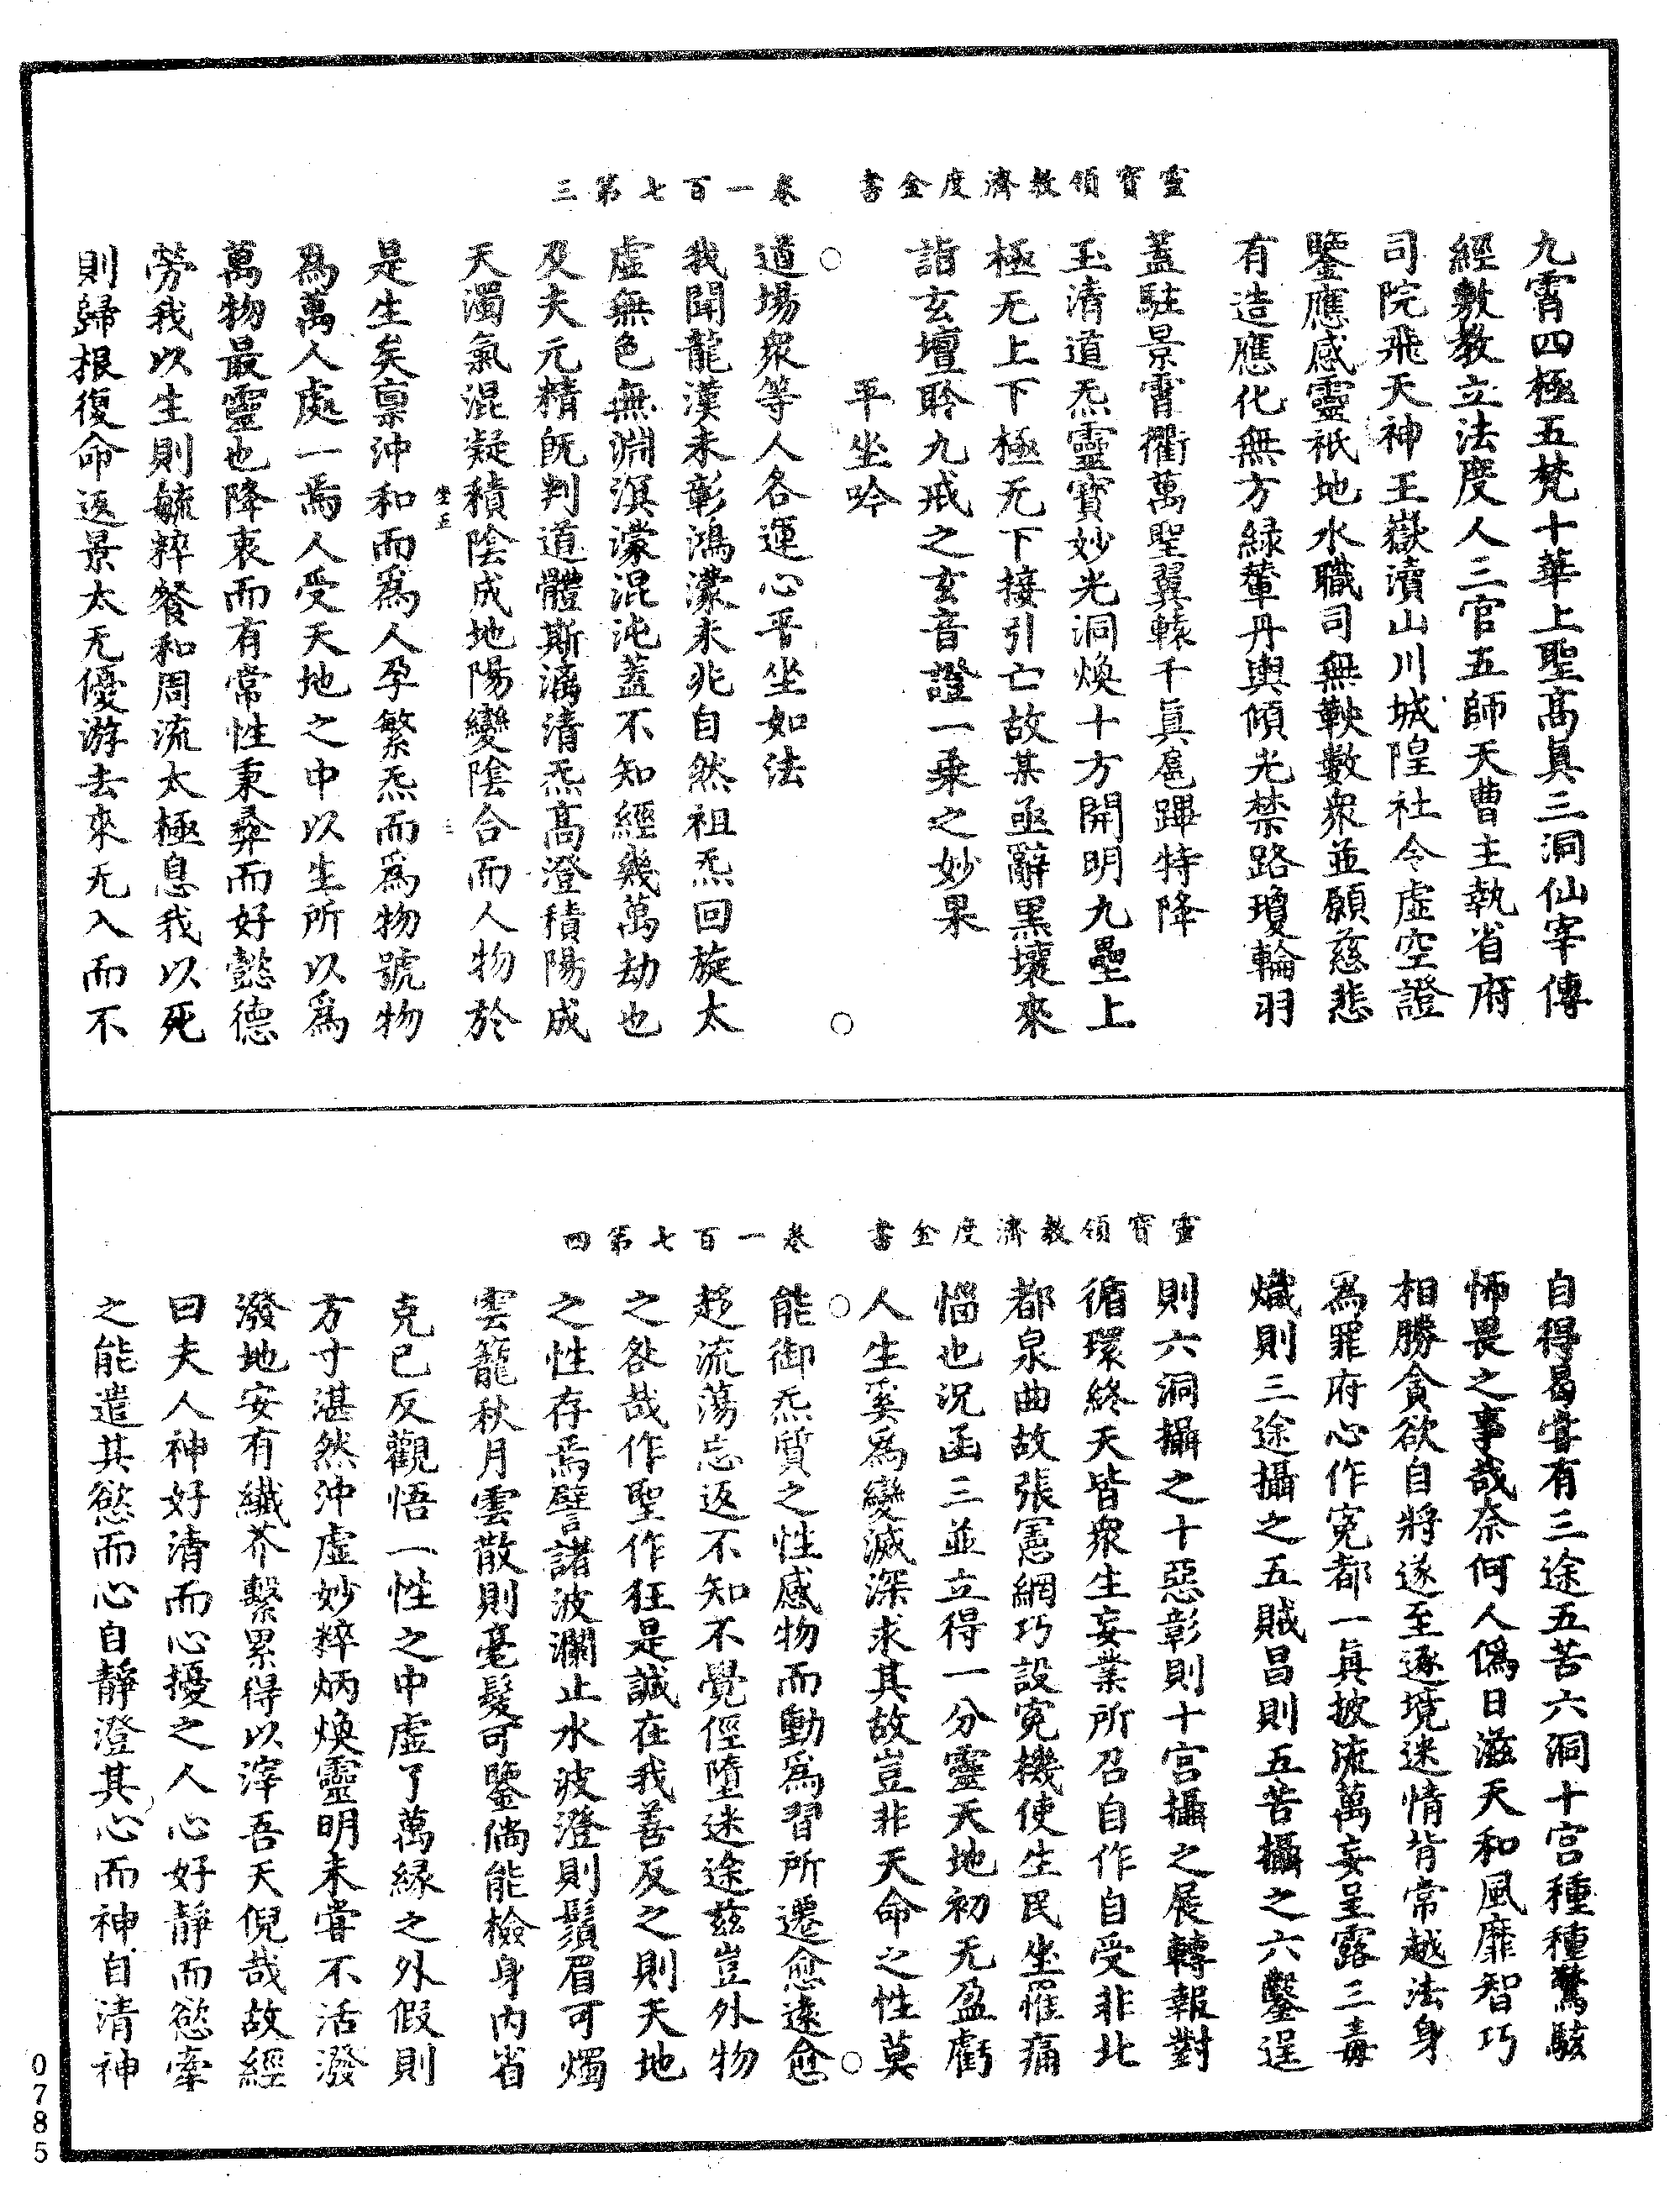 靈寶領教濟度金書　卷一百七第三
九霄四極五梵十華上聖高真三洞仙宰傳
經敷教立法度人三官五師天曹主執省府
司院飛天神王嶽瀆山川城隍社令虛空證
鑒應感靈祇地水職司無鞅數衆並願慈悲
有造應化無方緑輦丹輿傾光禁路瓊輪羽
蓋駐景霄衢萬聖翼轅千真扈蹕特降
玉清道炁靈寶妙光洞煥十方開明九壘上
極无上下極无下接引亡故某亟辭黑壤來
詣玄壇聆九戒之玄音證一乘之妙果
平坐吟
○　○
道場衆等人各運心平坐如法
我聞龍漢未彰鴻濛未兆自然祖炁回旋太
虛無色無淵溟濛混沌蓋不知經幾萬劫也
及夫元精既判道體斯漓清炁高澄積陽成
天濁氣混凝積陰成地陽變陰合而人物於
坐五　三
是生矣稟沖和而爲人孕繁炁而爲物號物
爲萬人處一焉人受天地之中以生所以爲
萬物最靈也降衷而有常性秉彝而好懿德
勞我以生則毓粹餐和周流太極息我以死
則歸根復命返景太无優游去來无入而不
靈寶領教濟度金書　卷一百七第四
自得曷嘗有三途五苦六洞十宫種種驚駭
怖畏之事哉奈何人僞日滋天和風靡智巧
相勝貪欲自將遂至逐境迷情背常越法身
爲罪府心作寃都一真披流萬妄呈露三毒
熾則三途攝之五賊昌則五苦攝之六鑿逞
則六洞攝之十惡彰則十宫攝之展轉報對
循環終天皆衆生妄業所召自作自受非北
都泉曲故張憲網巧設寃機使生民坐罹痛
惱也況函三並立得一分靈天地初无盈虧
人生奚爲變滅深求其故豈非天命之性莫
○　○
能御炁質之性感物而動爲習所遷愈遠愈
趍流蕩忘返不知不覺俓墮迷途兹豈外物
之咎哉作聖作狂是誠在我善反之則天地
之性存焉譬諸波瀾止水波澄則鬚眉可燭
雲籠秋月雲散則毫髮可鑒倘能檢身内省
克已反觀悟一性之中虛了萬緣之外假則
方寸湛然沖虛妙粹炳煥靈明未嘗不活潑
潑地安有纖芥繫累得以滓吾天倪哉故經
曰夫人神好清而心擾之人心好靜而慾牽
之能遣其慾而心自靜澄其心而神自清神
0785